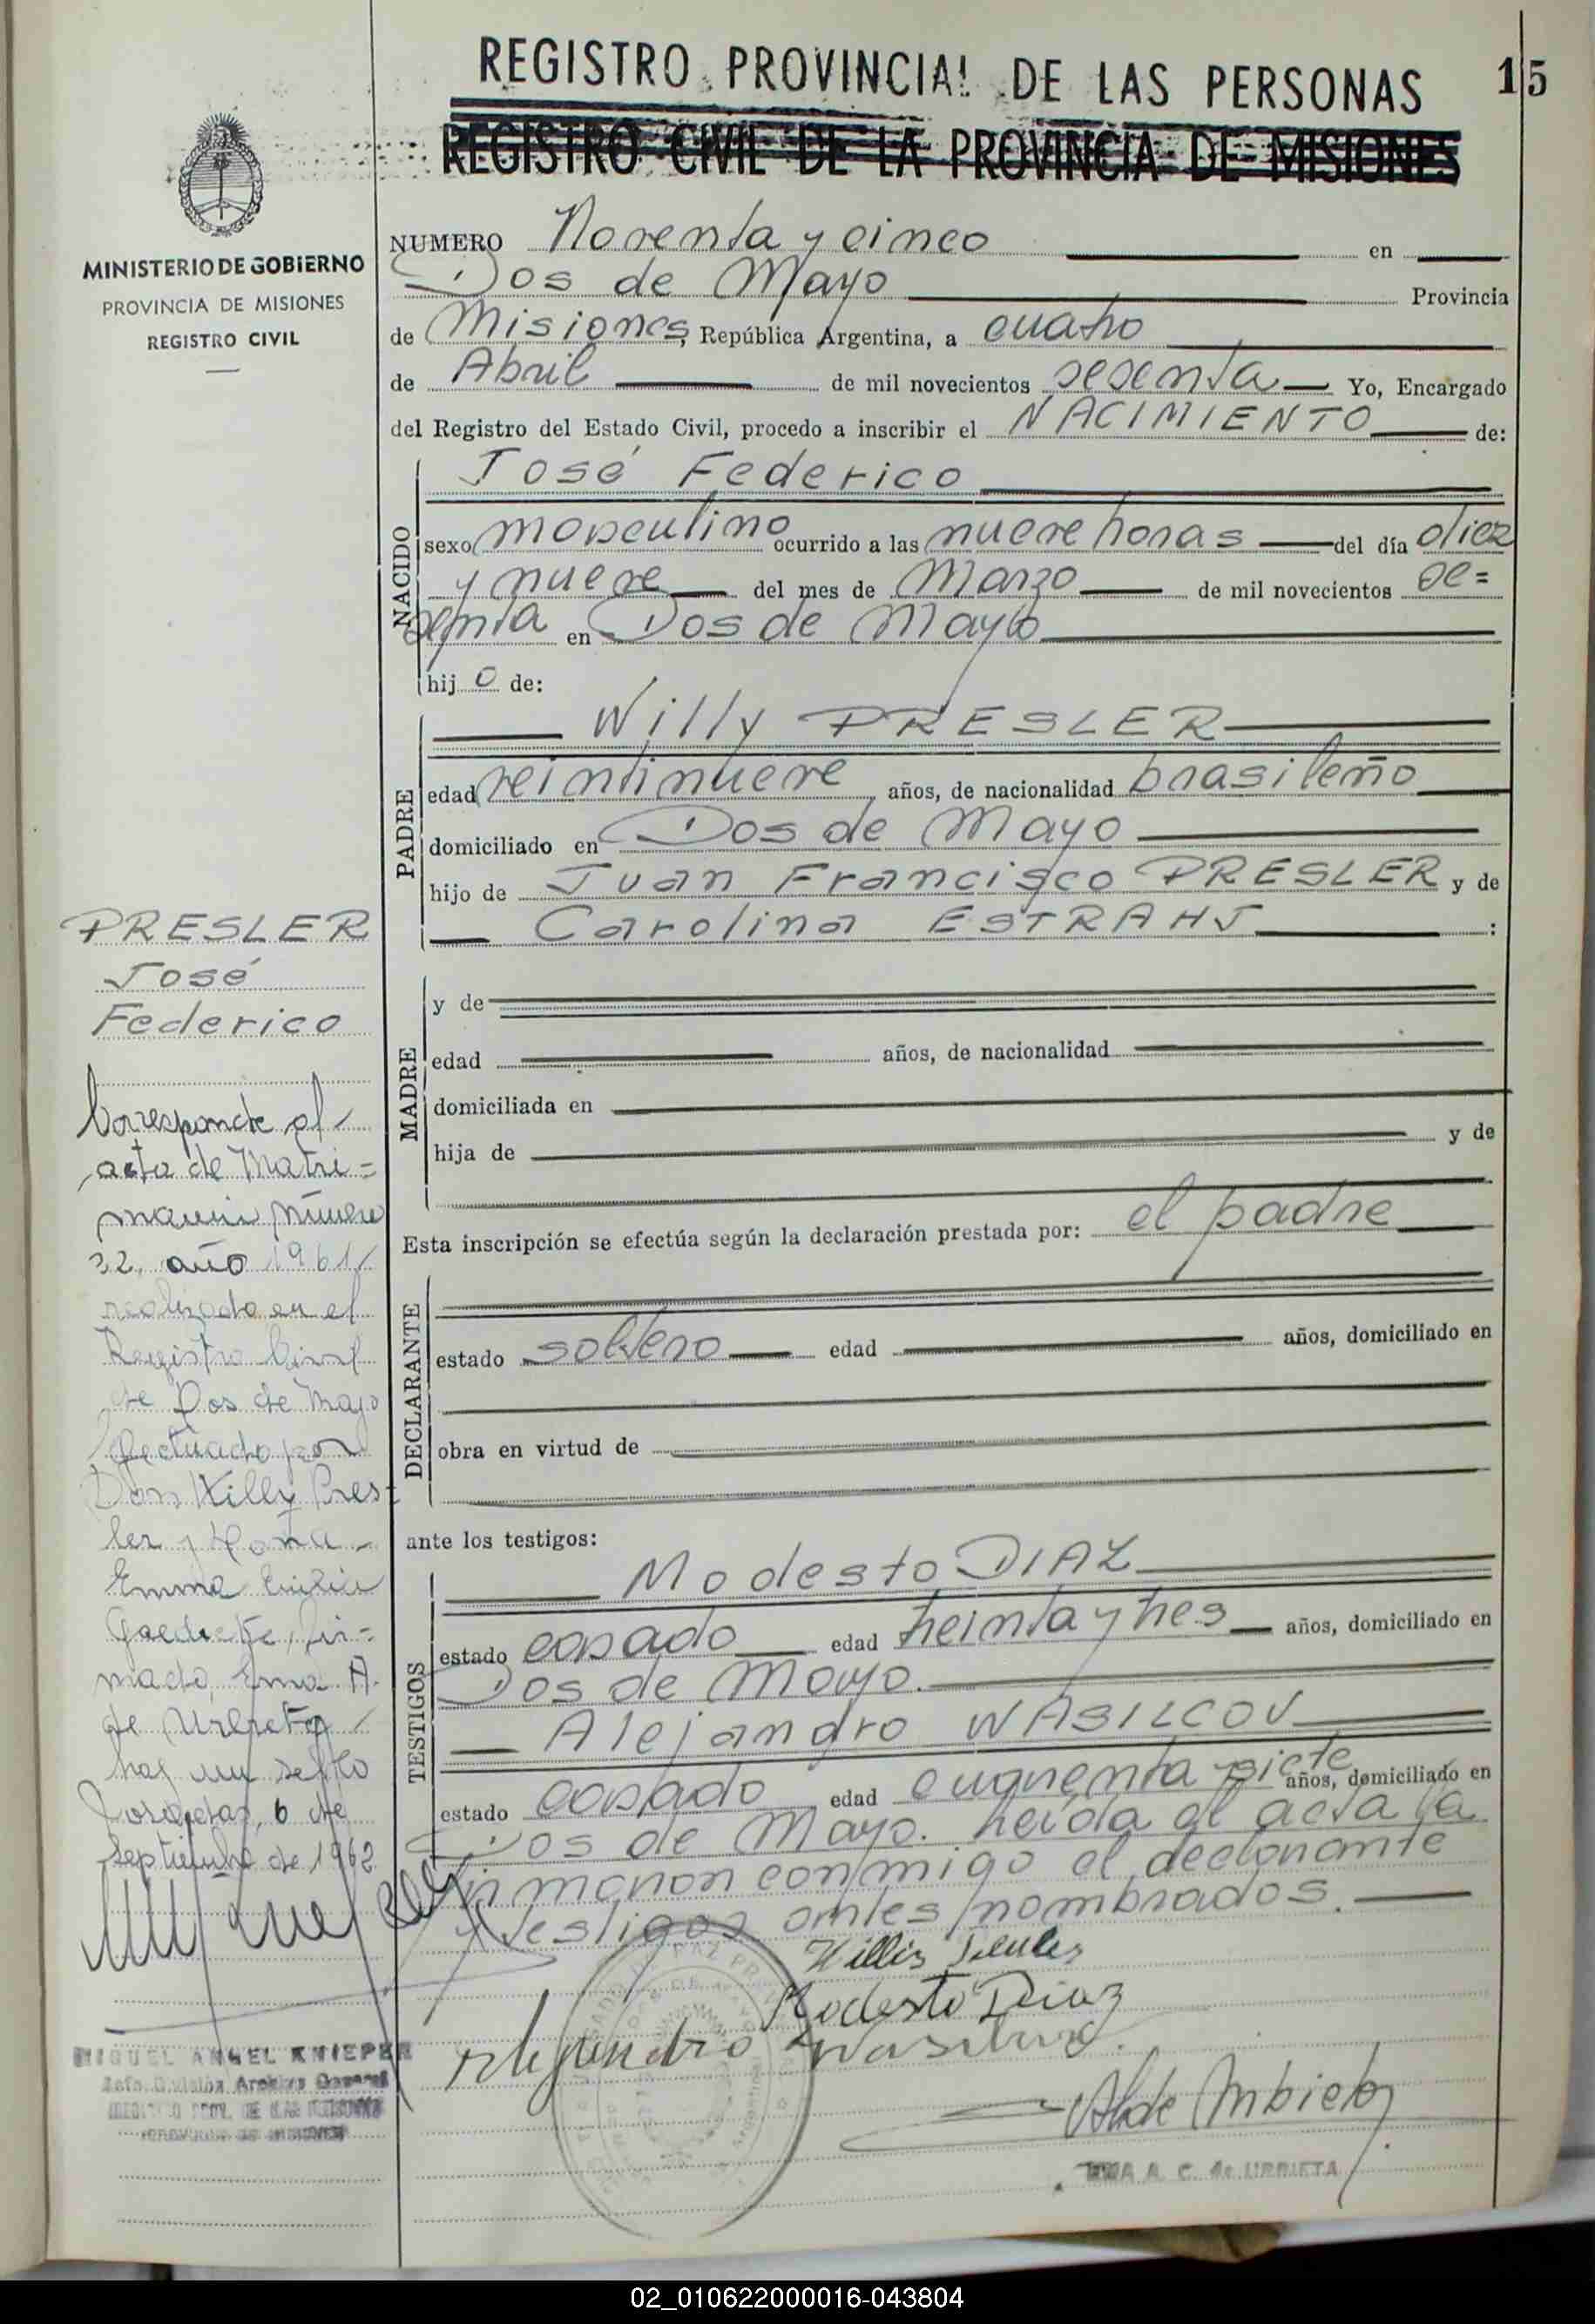 REGISTRO PROVINCIAL DE LAS PERSONAS
15
REGISTRO CIVIL DE LA PROVINCIA DE MISIONES
MINISTERIO DE GOBIERNO
PROVINCIA DE MISIONES
REGISTRO CIVIL
NUMERO Noventa y cinco en
Dos de Mayo Provincia
de Misiones, República Argentina, a cuatro
de Abril de mil novecientos sesenta Yo, Encargado
del Registro del Estado Civil, procedo a inscribir el NACIMIENTO de:
NACIDO
José Federico
sexo masculino ocurrido a las nueve horas del día diez
y nueve del mes de Marzo de mil novecientos se=
senta en Dos de Mayo
hij o de:
PADRE
Willy PRESLER
edad veintinueve años, de nacionalidad brasileño
domiciliado en Dos de Mayo
hijo de Juan Francisco PRESLER y de
Carolina ESTRAHJ :
MADRE
y de
edad años, de nacionalidad
domiciliada en
hija de y de
Esta inscripción se efectúa según la declaración prestada por: el padre
DECLARANTE
estado soltero edad años, domiciliado en
obra en virtud de
ante los testigos:
TESTIGOS
Modesto DIAZ
estado casado edad treinta y tres años, domiciliado en
Dos de Mayo.
Alejandro WASILCOV
estado casado edad cuarenta siete años, domiciliado en
Dos de Mayo. Leída el acta la
firmaron conmigo el declarante
y testigos antes nombrados.
Modesto Diaz
Alejandro
EMA A. C. de URRIETA
PRESLER
José
Federico
Corresponde al
acta de Matri=
monio número
32, año 1961
realizado en el
Registro Civil
de Dos de Mayo
efectuado por
Don Willy Pres-
ler y Doña
Emma
fir=
mado, Ema A.
de Urrieta
hay un sello
Posadas, 6 de
septiembre de 1962
MIGUEL ANGEL KNIEPER
Jefe División Archivo General
02_010622000016-043804